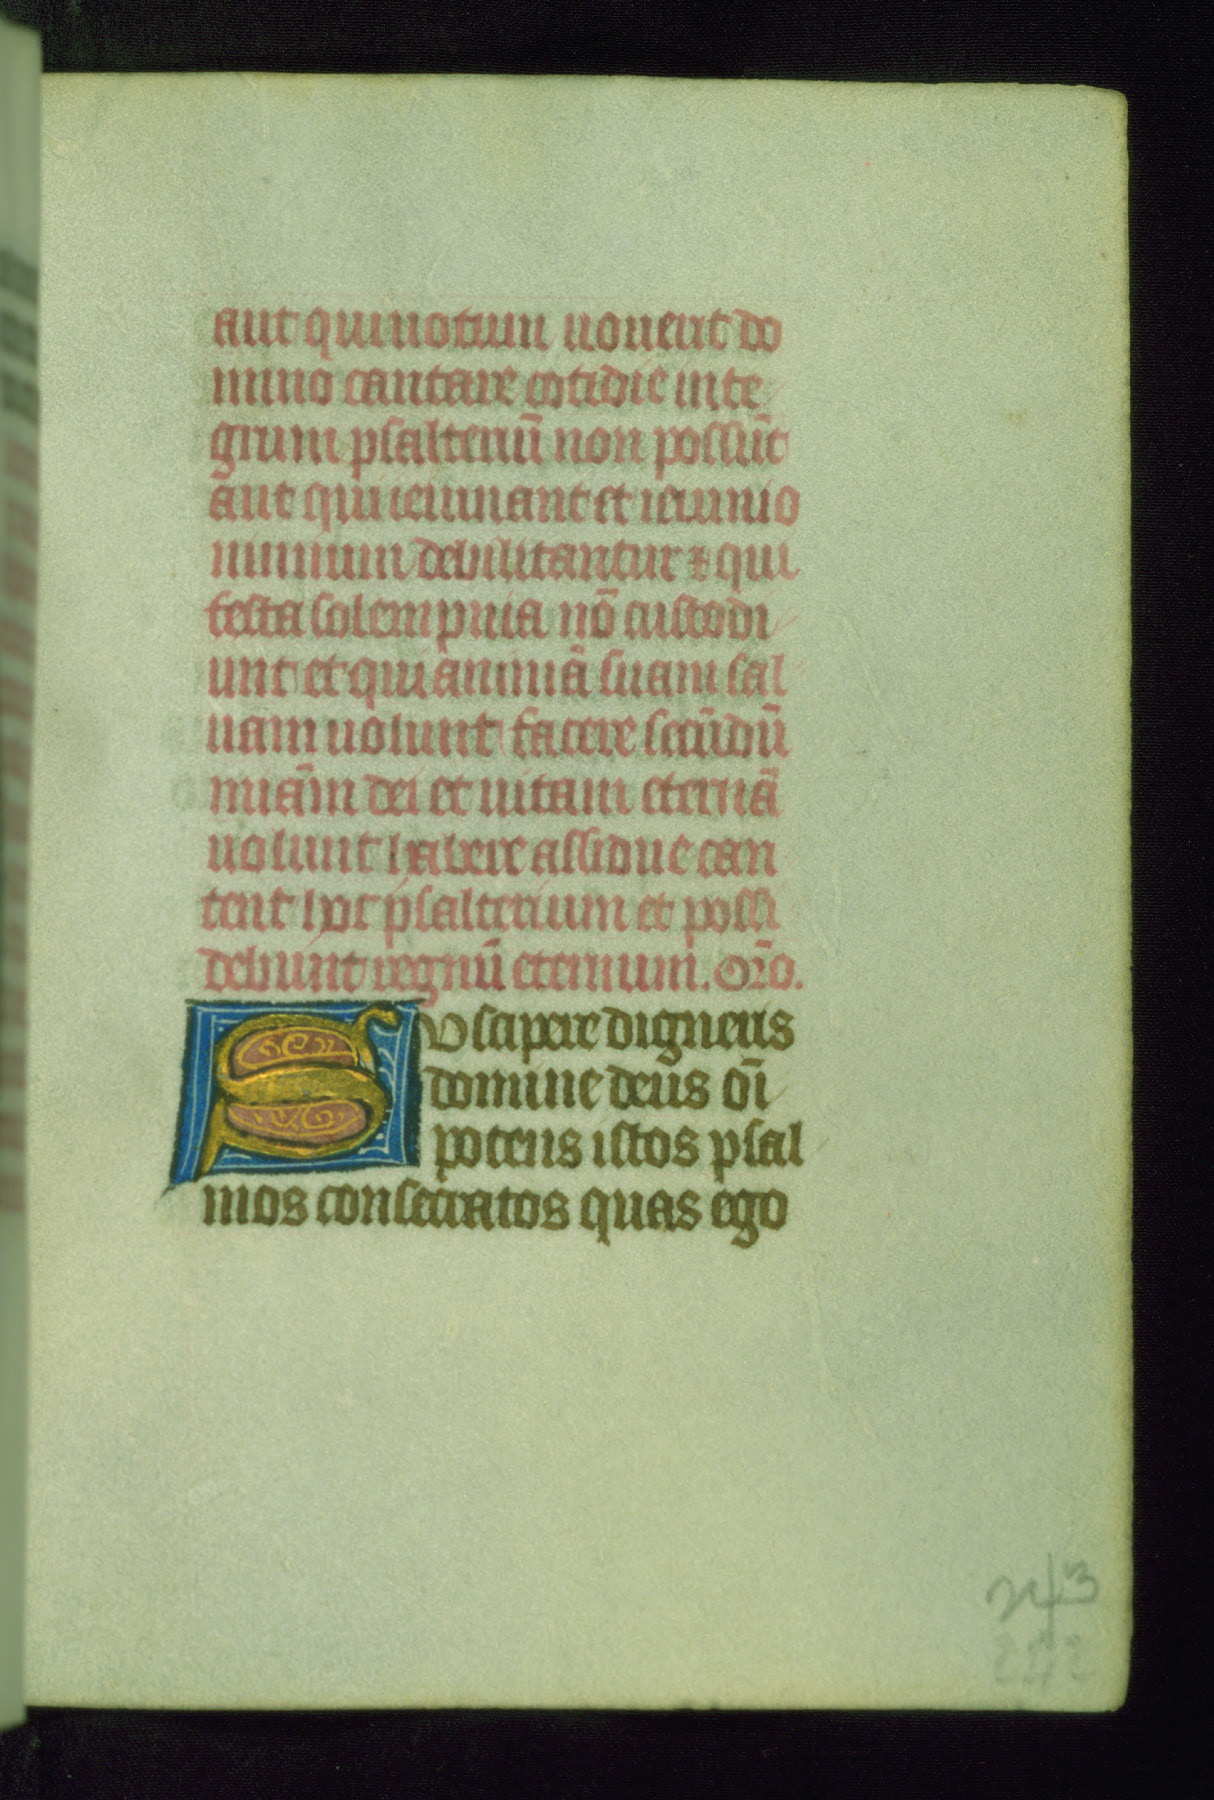 aut qui uotum uouerit do
mino cantare cotidie inte
grum psalteriū non possūt
aut qui ieiunant et ieiunio
nimium debilitantur ⁊ qui
festa solempnia nō custodi
unt et qui animā suam sal
uam uolunt facere secūdū
miām dei et uitam eternā
uolunt habere assidue can
tent hoc psalterium et possi
debunt regnū eternum. Orō.
Suscipere digneris
domine deus oī
potens istos psal
mos consecratos quas ego
243